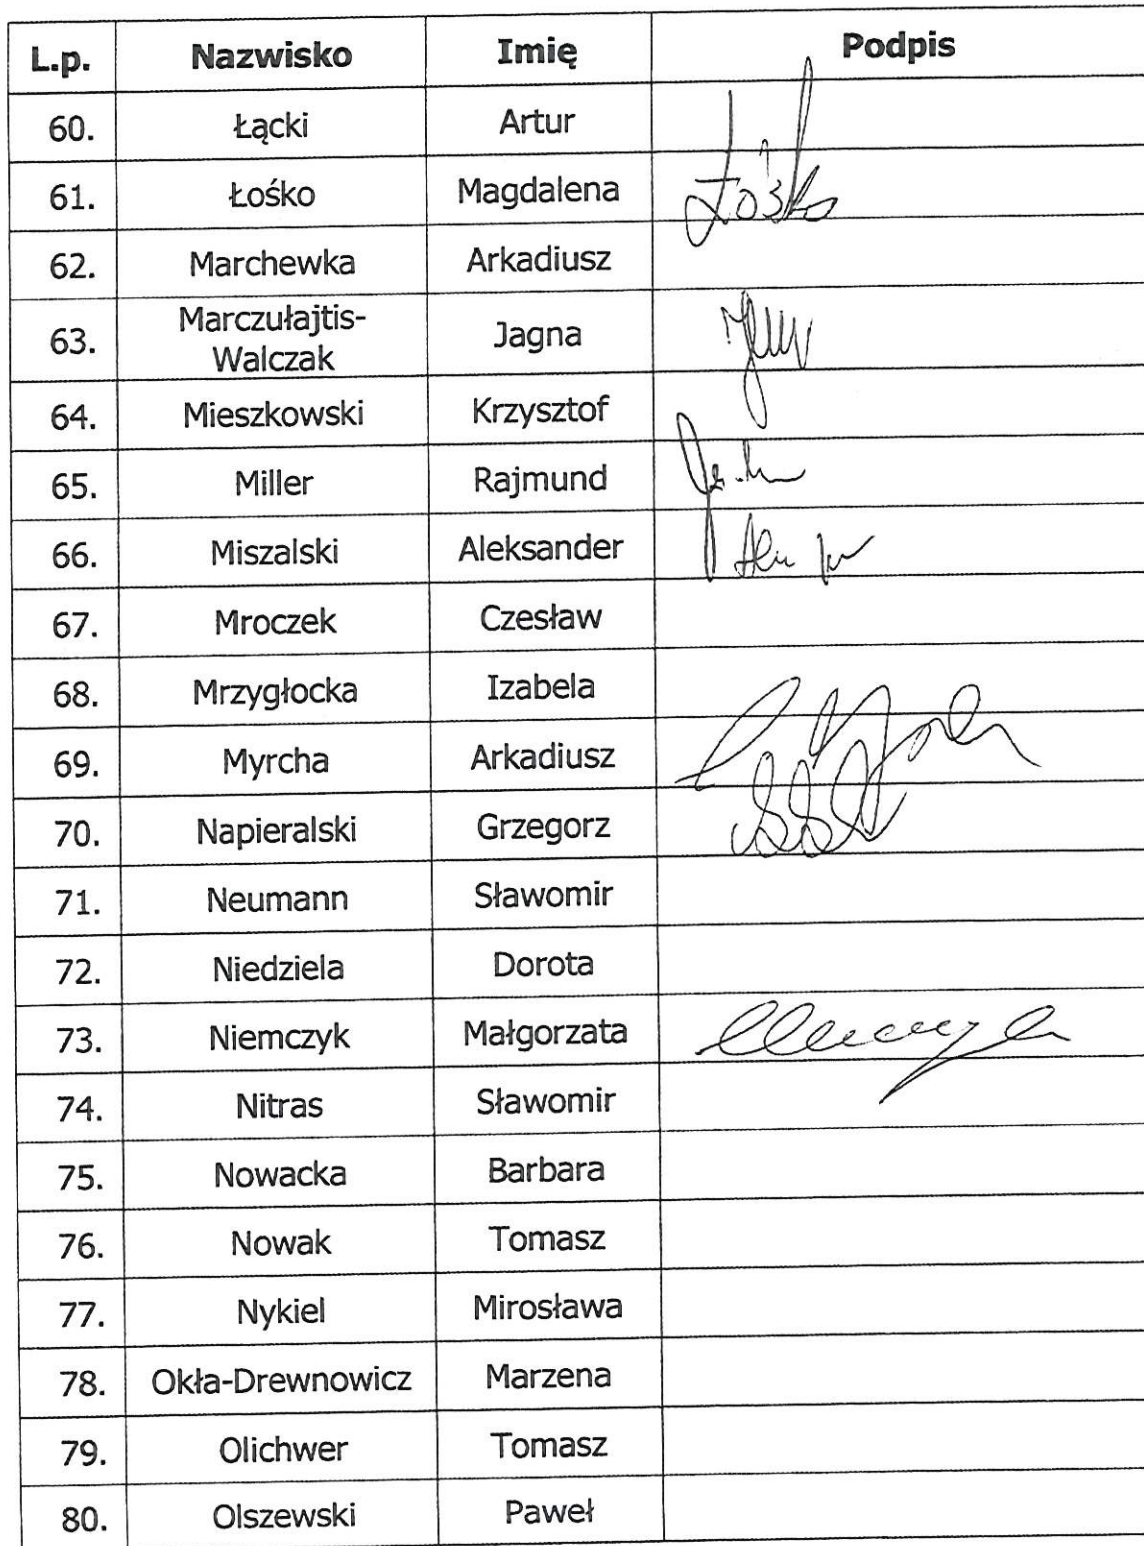 L.p. Nazwisko Imię Podpis
60. Łącki Artur
61. Łośko Magdalena Łośko
62. Marchewka Arkadiusz
63. Marczułajtis-
Walczak Jagna
64. Mieszkowski Krzysztof
65. Miller Rajmund
66. Miszalski Aleksander
67. Mroczek Czesław
68. Mrzygłocka Izabela
69. Myrcha Arkadiusz
70. Napieralski Grzegorz
71. Neumann Sławomir
72. Niedziela Dorota
73. Niemczyk Małgorzata
74. Nitras Sławomir
75. Nowacka Barbara
76. Nowak Tomasz
77. Nykiel Mirosława
78. Okła-Drewnowicz Marzena
79. Olichwer Tomasz
80. Olszewski Paweł